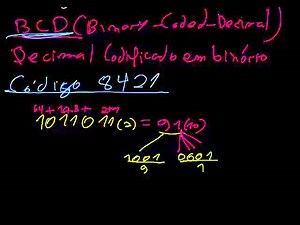 BCD (Binary-Coded-Decimal)
Decimal Codificado em binário
Código 8421
1011011(2) = 91(10)
1001 0001
9 1